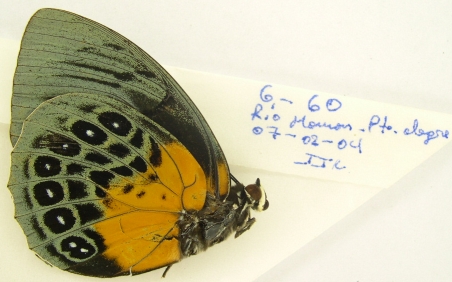 6 - 60
Rio Momon - Pto. alegre
07-02-04